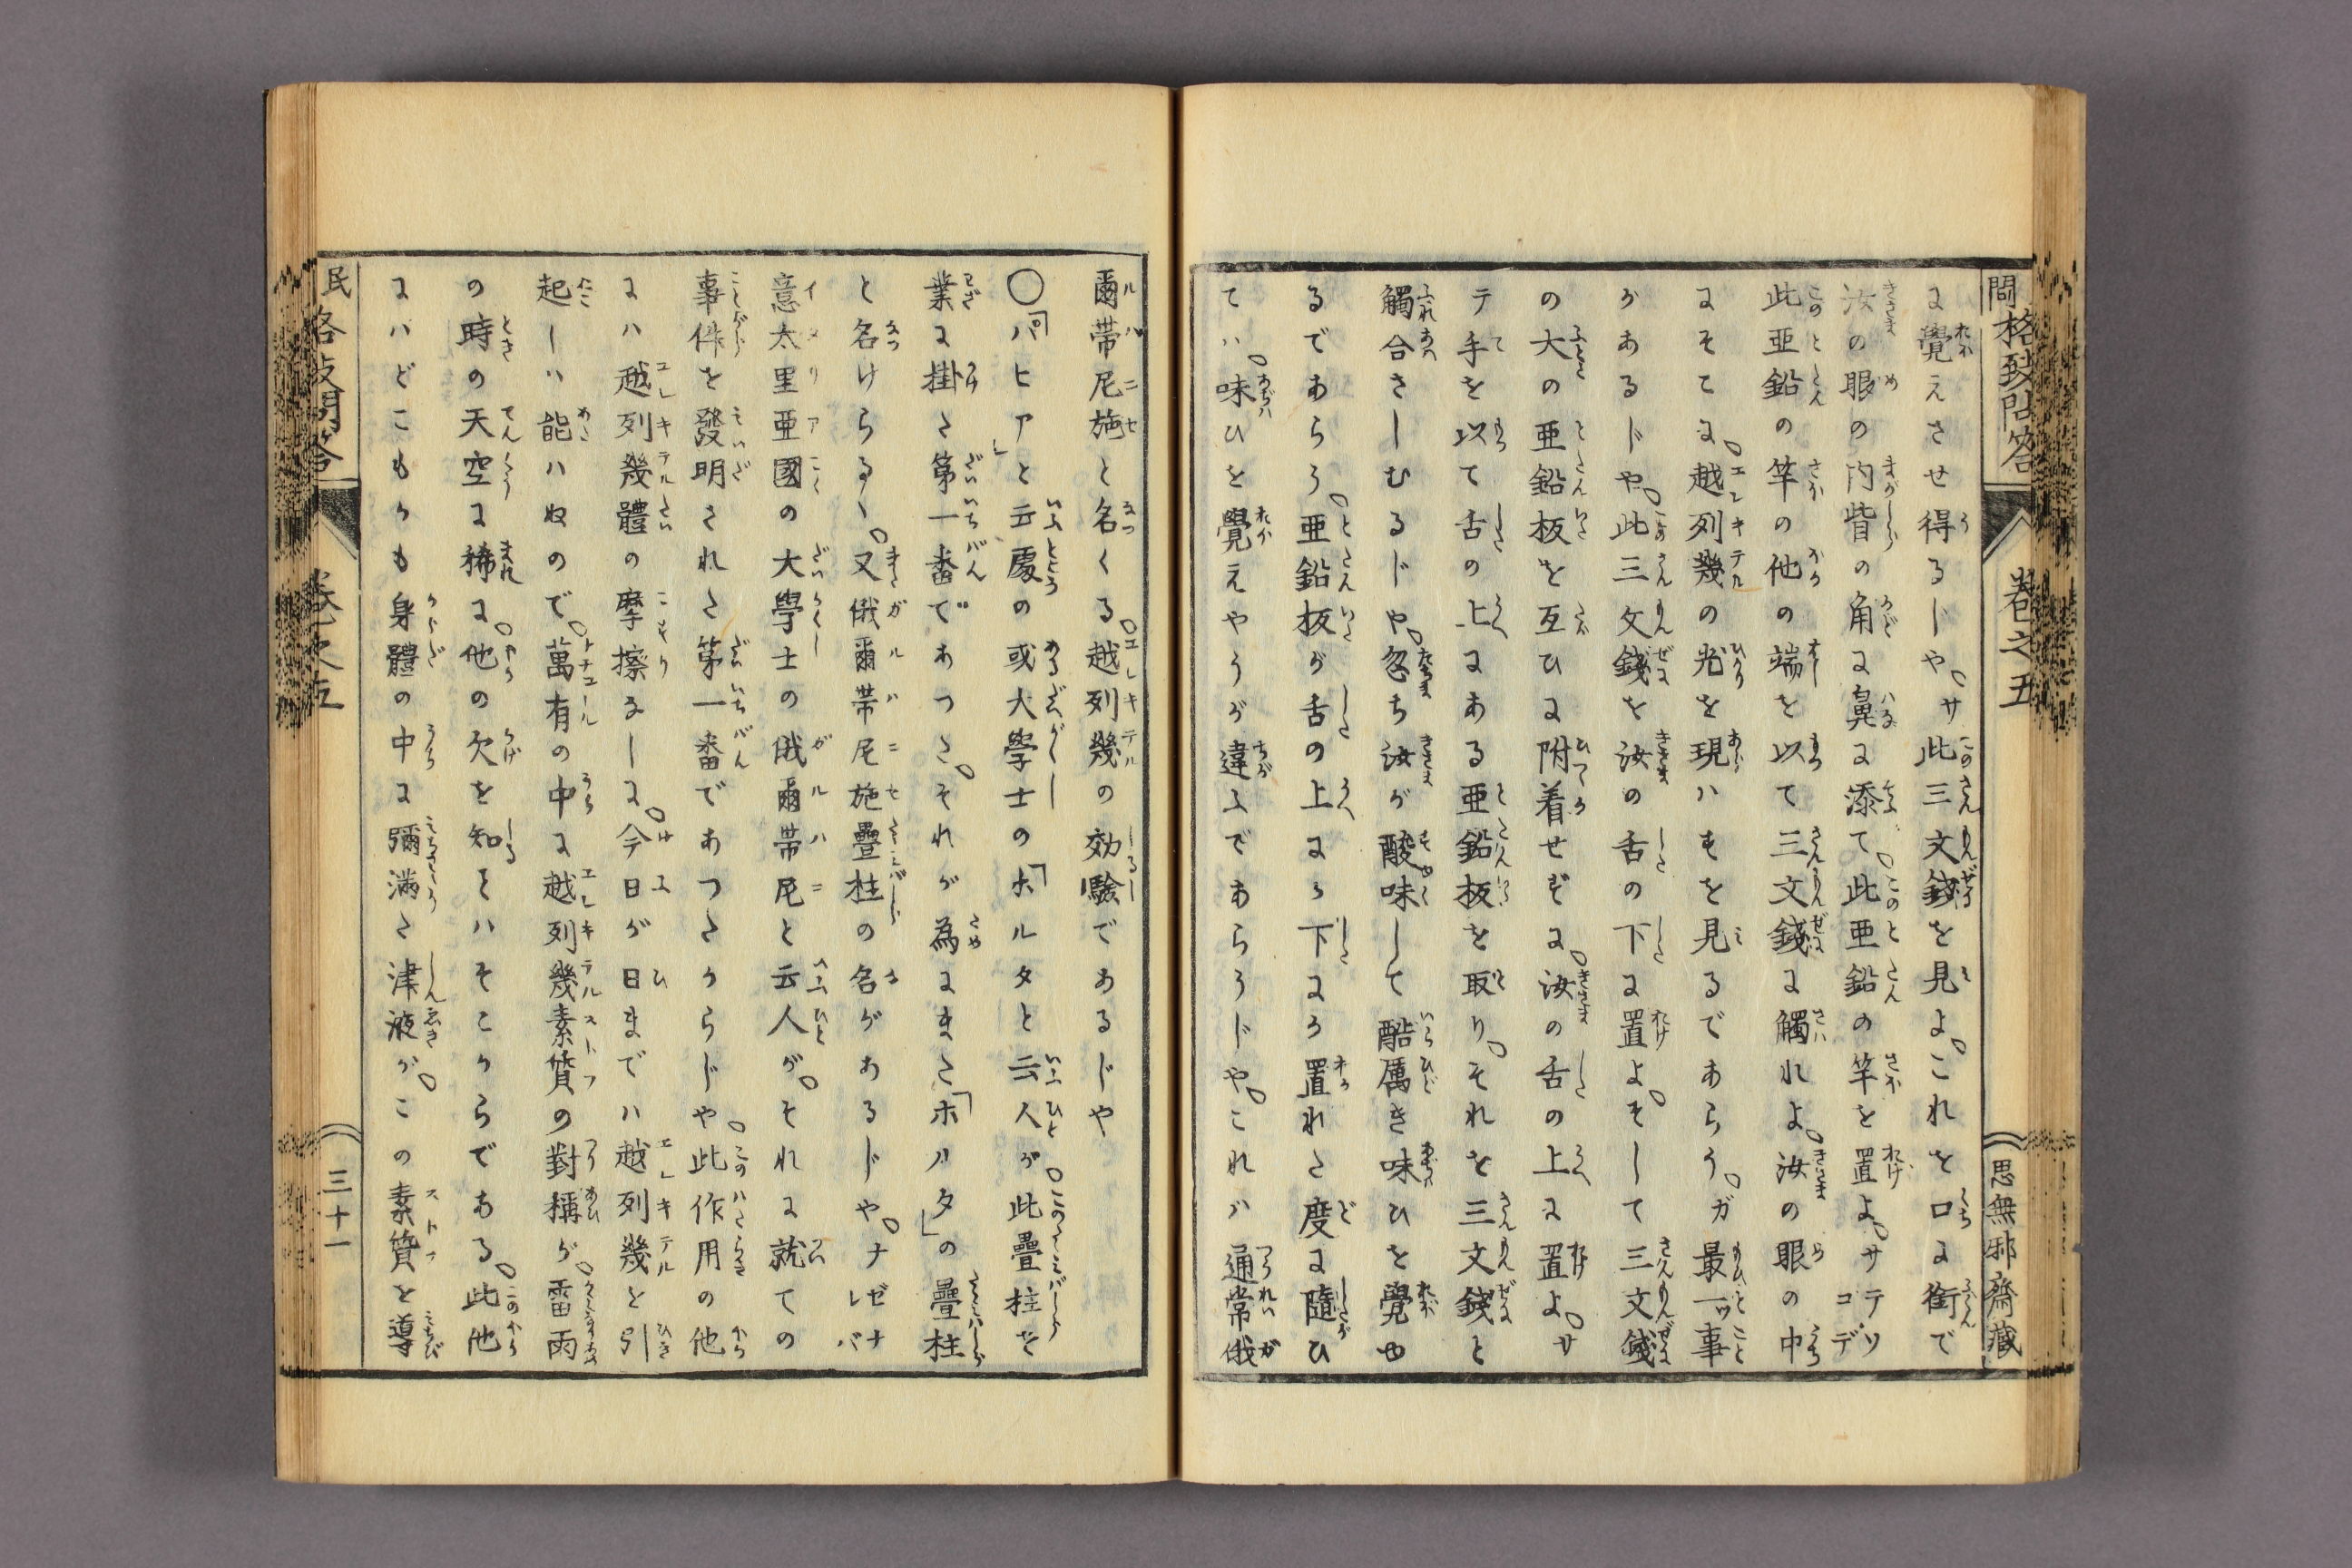 問格致問答 巻之五 思無邪齋藏
に覺えさせ得るじや。サ此三文錢を見よ。これを口に銜で
汝の眼の内眥の角に鼻に添て。此亜鉛の竿を置よ。サテソコデ
此亜鉛の竿の他の端を以て三文錢に觸れよ。汝の眼の中
にそこに。越列幾の光を現ハすを見るであらう。ガ最一ッ事
があるじや。此三文錢を汝の舌の下に置よ。そして三文錢
の大の亜鉛板を互ひに附着せずに。汝の舌の上に置よ。サ
テ手を以て舌の上にある亜鉛板を取り。それを三文錢と
觸合さしむるじや。忽ち汝が酸味して酷厲き味ひを覺ゆ
るであらう。亜鉛板が舌の上にか下にか置れた度に隨ひ
てハ。味ひを覺えやうが違ふであらうじや。これハ通常俄
爾帯尼施と名くる。越列幾の効驗であるじや
○「パヒア」と云處の或大學士の「ホルタと云人が。此疊柱を
業に掛た第一番であつた。それが為にまた「ホルタ」の疊柱
と名けらるゝ。又俄爾帯尼施疊柱の名があるじや。ナゼナレバ
意太里亜國の大學士の俄爾帯尼と云人が。それに就ての
事件を發明された第一番であつたからじや。此作用の他
にハ越列幾體の摩擦なしに。今日が日までハ越列幾を引
起しハ能ハぬので。萬有の中に越列幾素質の對稱が。雷雨
の時の天空に稀に。他の欠を知るハそこからである。此他
にハどこもかも身體の中に彌滿た津液が。この素質を導
民 格致問答 巻之五 三十一